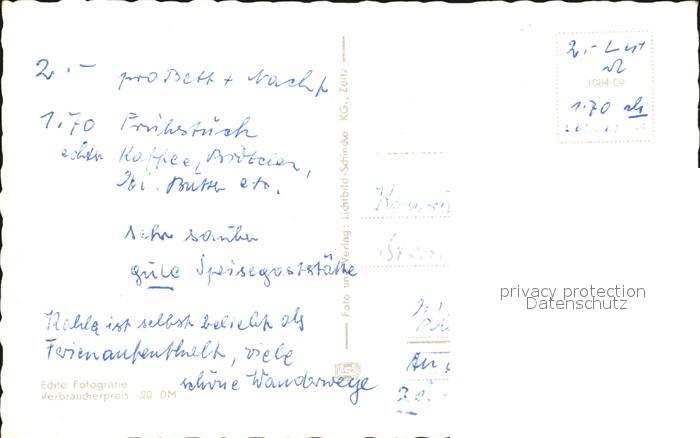 2.- pro Bett + Nacht
1.70 Frühstück
echter Kaffee, Brötchen,
Ei. Butter etc.
sehr sauber
gute Speisegaststätte
Kahla ist selbst beliebt als
Ferienaufenthalt, viele
schöne Wanderwege
Echte Fotografie
Verbraucherpreis -20 DM
Foto und Verlag: Lichtbild-Schincke KG., Zeitz
2.-
1084-69
1.70
privacy protection
Datenschutz